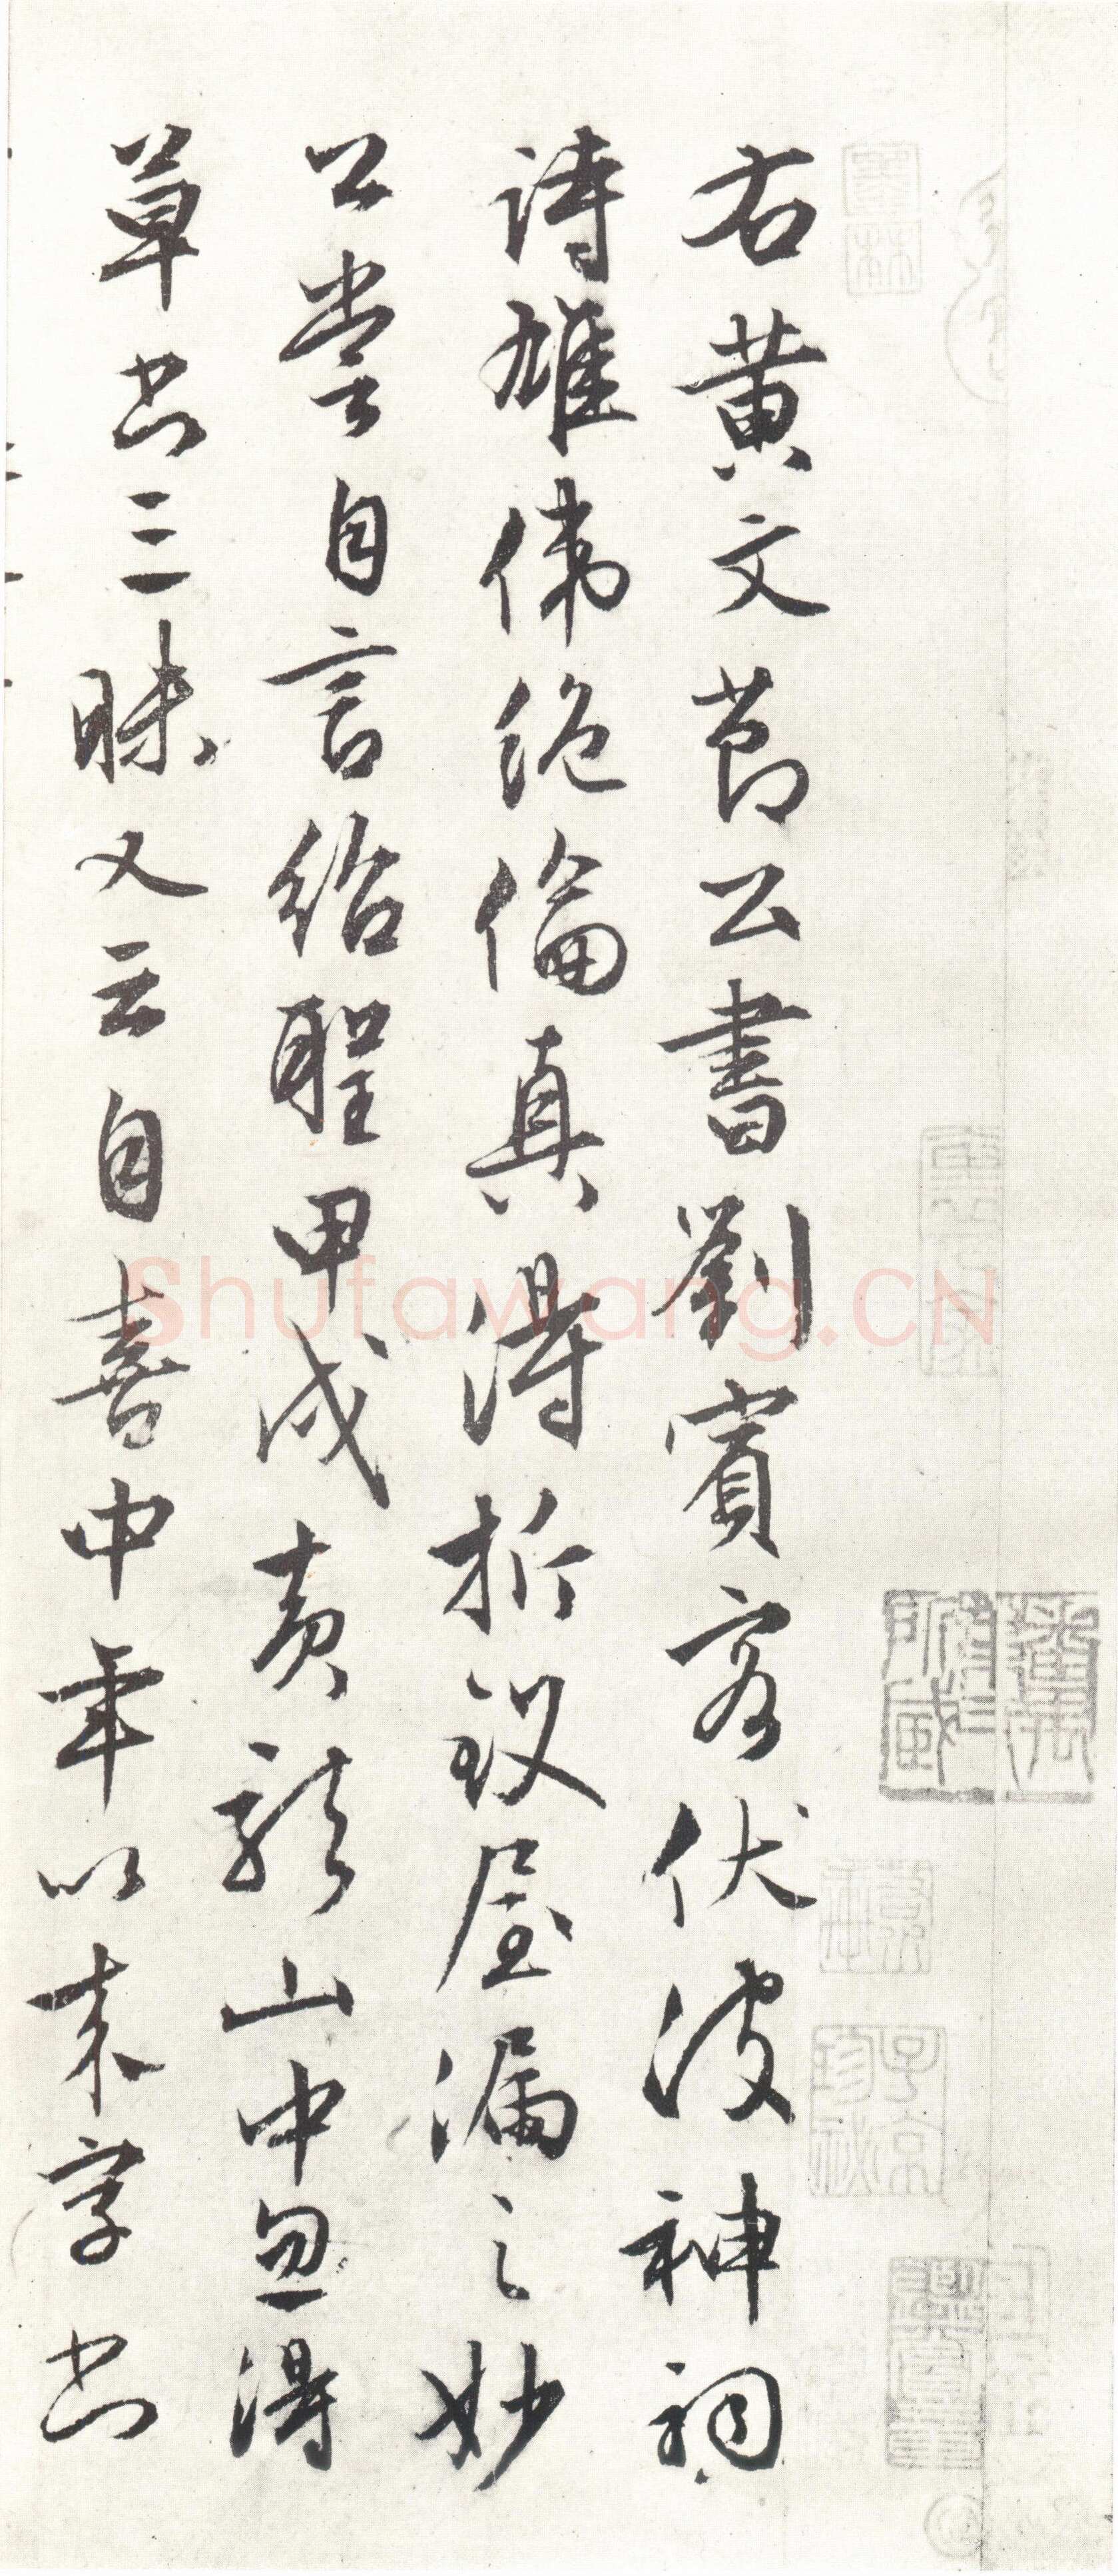 右黄文節公書劉賓客伏波神祠
詩雄偉絶倫真得折釵屋漏之妙
公嘗自言紹聖甲戌黄龍山中忽得
草書三昧又云自喜中年以来字書
子京
珍秘
Shufawang.CN